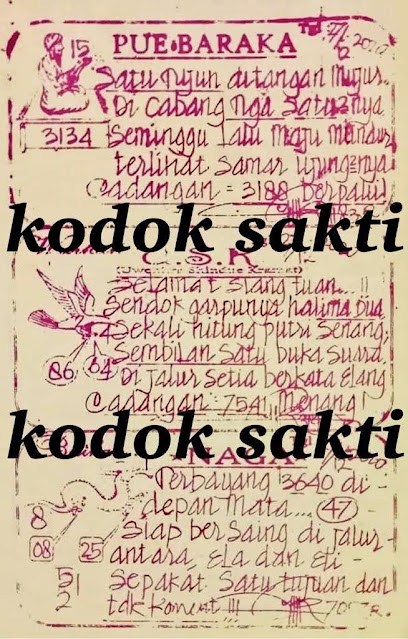 15 PUE•BARAKA
Satu Tujun ditangan Mujur..
Di Cabang Nga Satu2nya
3134 Seminggu lalu Maju Mundur
terlihat Samar ujung2nya
Cadangan = 3188 berpalu!
kodok sakti
Selamat Siang tuan...!!
Sendok garpunya halima Dua
Sekali hitung putri Senang,
86 64 Sembilan Satu buka Suara
Di jalur Setia berkata Elang
Cadangan = 7541 Menang!
kodok sakti
NAGA
Terbayang 3640 di -
8 depan Mata... 47
Siap berSaing di jalur -
08 25 antara, Ela dan Eti -
5 Sepakat Satu tujuan dan
2 tdk Koment !!!